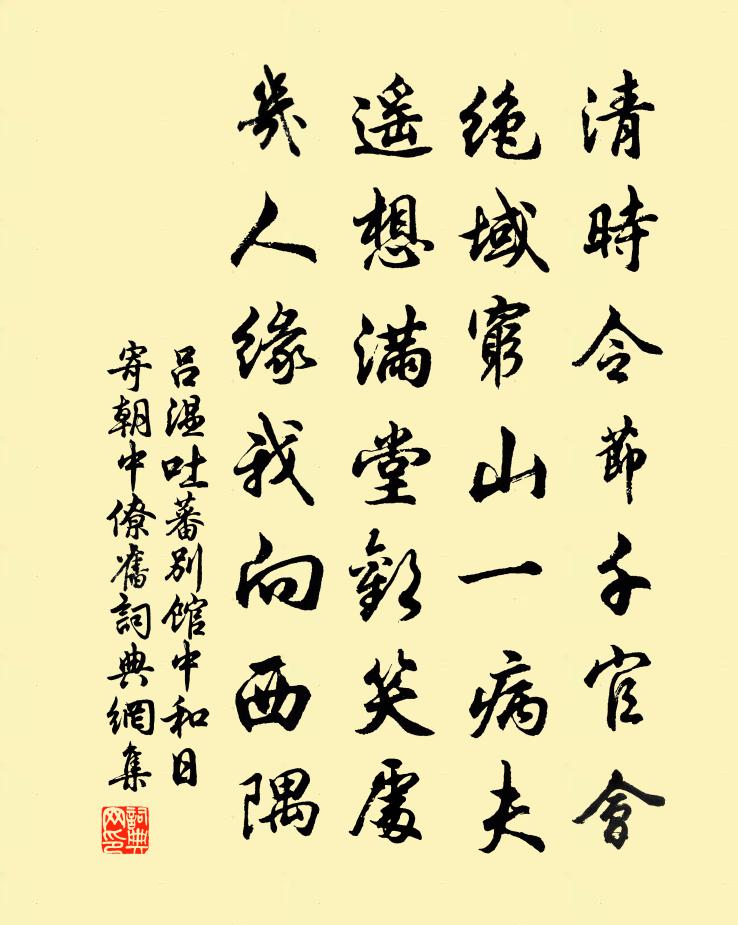 清時令節千官會
絕域窮山一病夫
遙想滿堂歡笑處
幾人緣我向西隅
呂溫吐蕃別館中和日
寄朝中僚舊詞典網集
詞典
网印